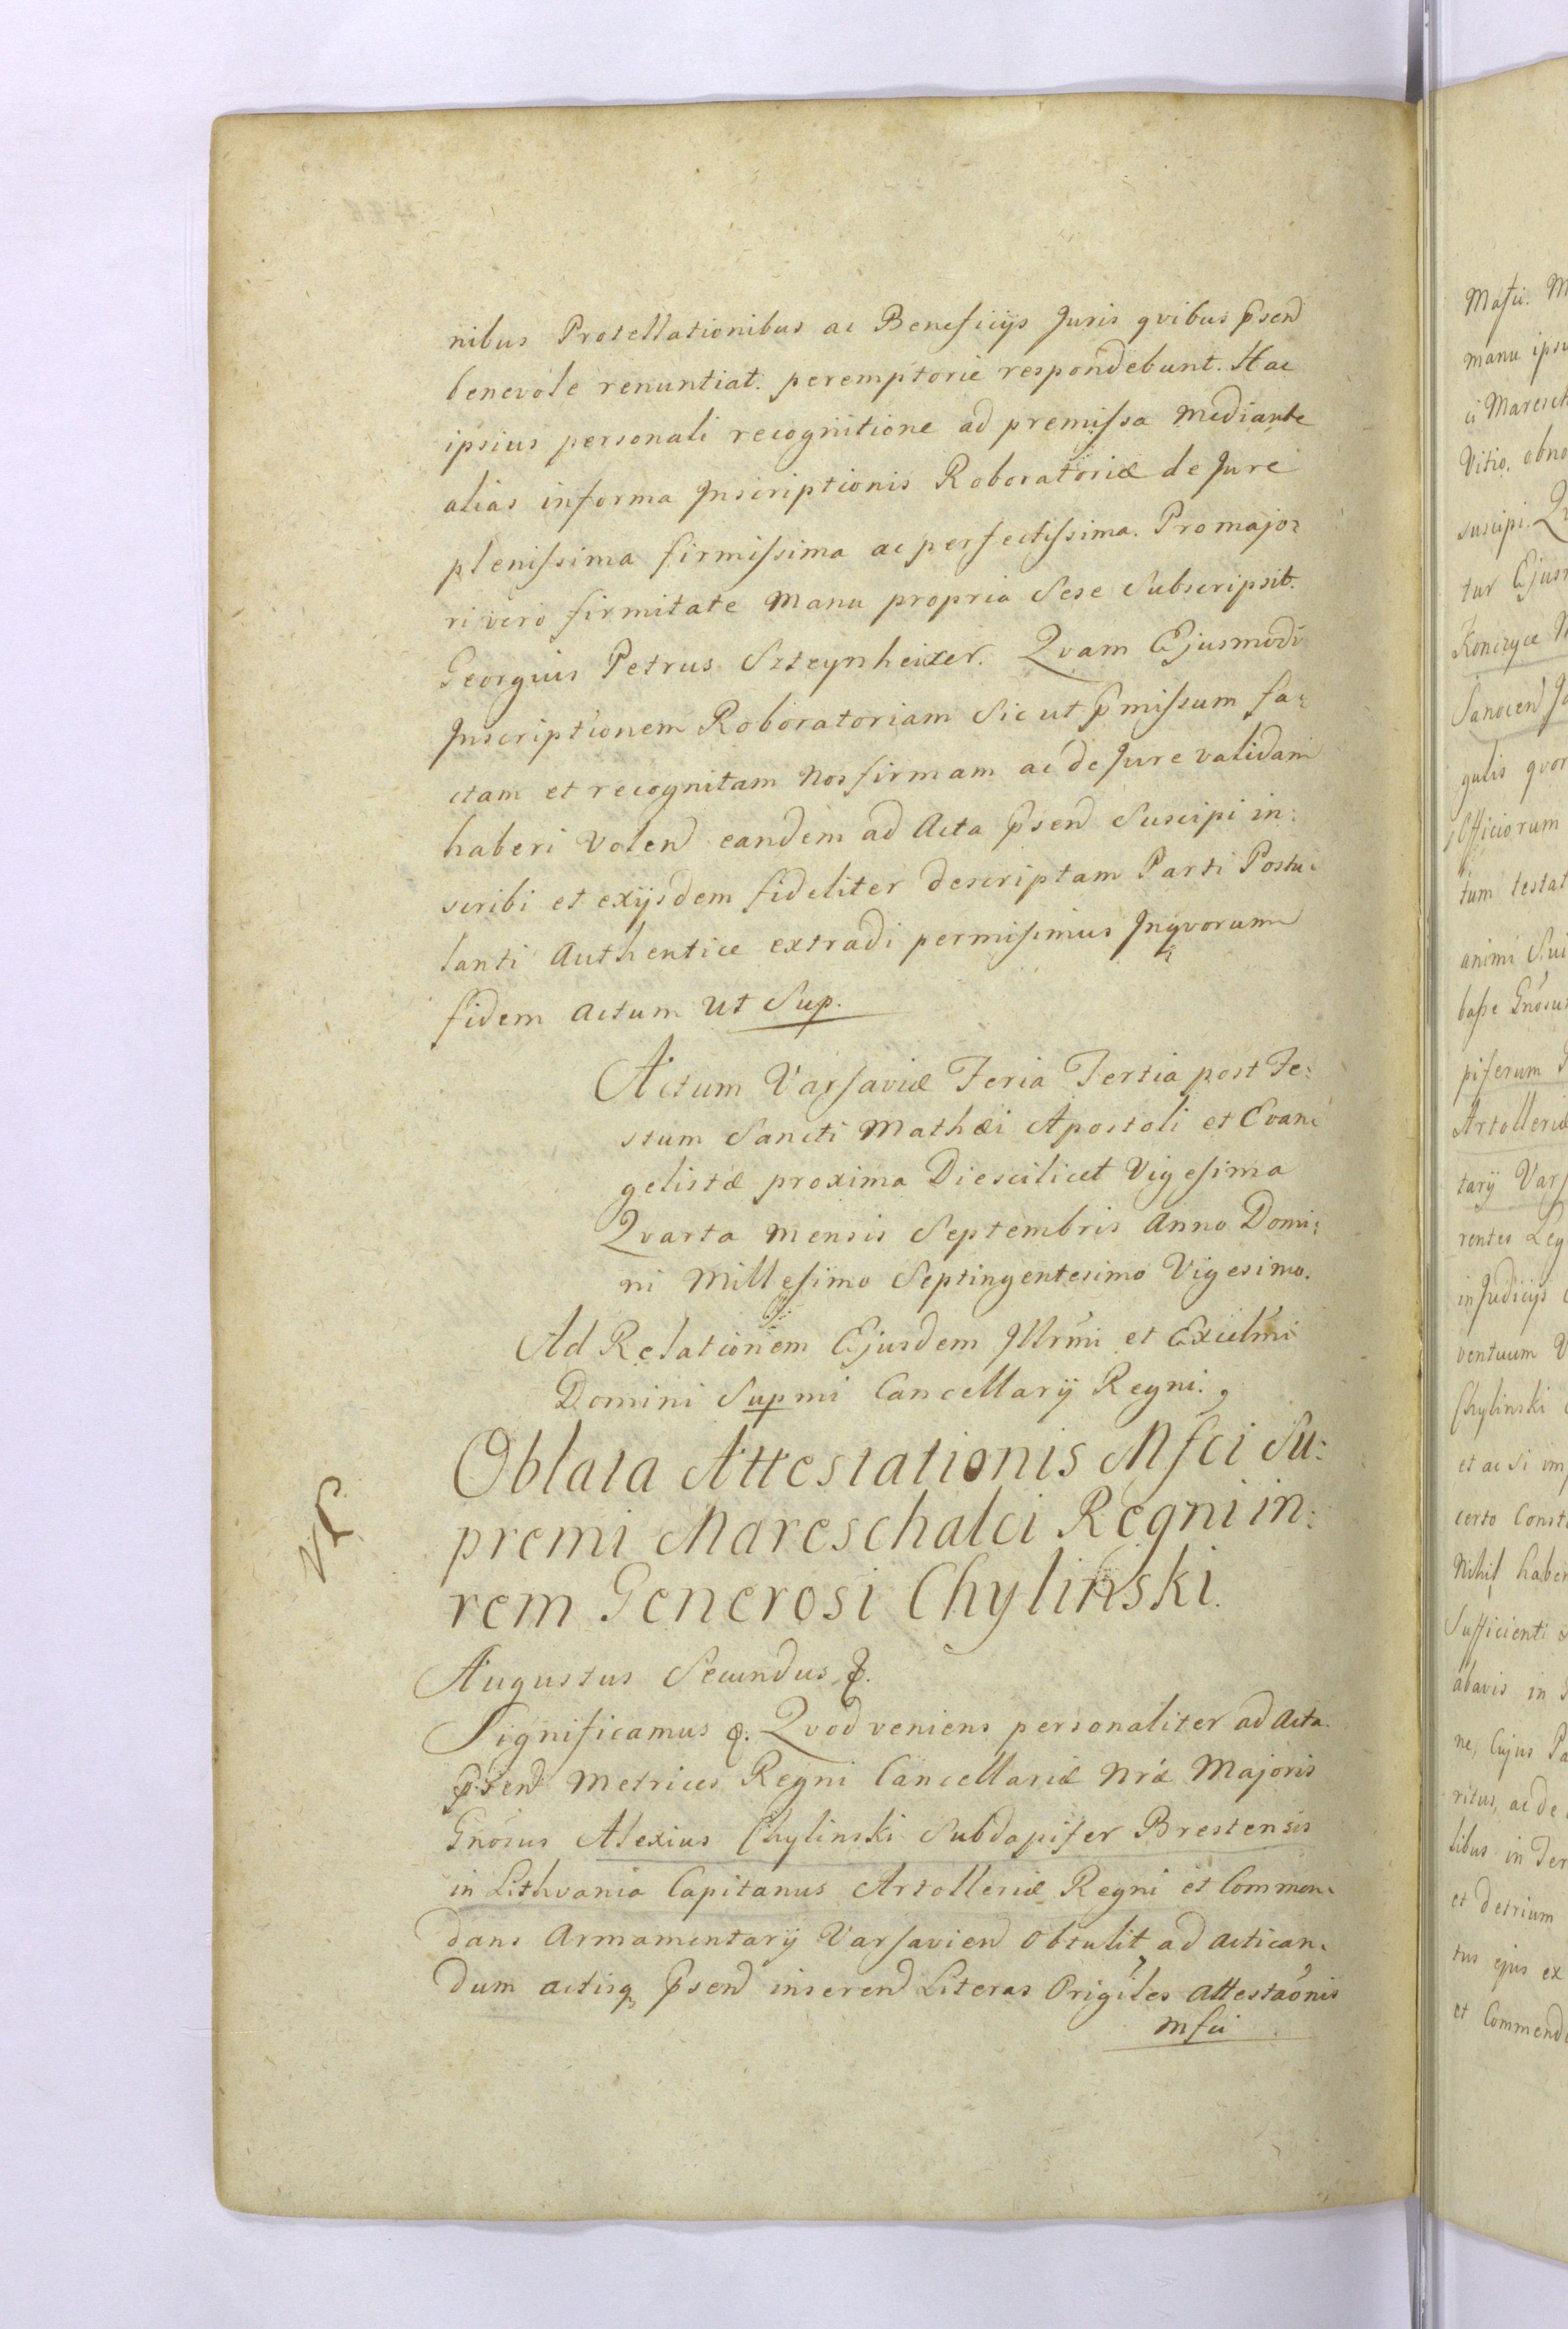 nibus Protellationibus ac Beneficijs Juris qvibus p̄send
benevole renuntiat. peremptorie respondebunt. Hac
ipsius personali recognitione ad premissa mediante
alias in forma Jnscriptionis Roboratoriæ de Jure
plenissima firmissima ac perfectissima. Pro majo:
ri vero firmitate manu propria Sese Subscripsit.
Georgius Petrus Szteynheixer. Qvam Ejusmodi
Jnscriptionem Roboratoriam Sic ut p̄missum fa:
ctam et recognitam Nos firmam ac de Jure validam
haberi Volend eandem ad Acta p̄send Suscipi in:
scribi et exijsdem fideliter descriptam Parti Postu:
lanti Authentice extradi permisimus Jnqvorum
fidem Actum Ut Sup.
Actum Varsaviæ Feria Tertia post Fe:
stum Sancti Mathæi Apostoli et Evan:
gelistæ proxima Die scilicet Vigesima
Qvarta mensis Septembris Anno Domi:
ni Millesimo Septingentesimo Vigesimo.
Ad Relationem Ejusdem Jllrm̄i et Excelm̄i
Domini Supmi Cancellarij Regni.
Oblata Attestationis Mfci Su:
premi Mareschalci Regni in:
rem Generosi Chylinski.
NS
Augustus Secundus &.
Significamus &. Qvod veniens personaliter ad Acta
p̄send Metrices Regni Cancellariæ Nr̄æ Majoris
Gnōsus Alexius Chylinski Subdapifer Brestensis
in Lithvania Capitanus Artolleriæ Regni et Commen:
dans Armamentarij Varsaviend Obtulit ad actican:
dum actisq, p̄send inserend Literas Origīles Attestaōnis
Mfci
Mafci. M
manu ipsi
ci Maresch
Vitio, obno
suscipi. Q
tur Ejusm
Konczyce
Sanocen
gulis qvor
Officiorum
tum testat
animi Sui
basse Gnōsus
piferum
Artolleriæ
tarij Vars
rentes Leg
in Judicijs
ventuum V
Chylinski
et ac si im
certo Const
Nihil haber
Sufficienti
abavis in
ne, Cujus Pa
ritus, ac de
libus in Ter
et detrium
tus ejus ex
et Commend